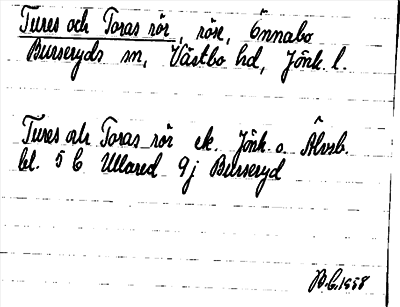 Tures och Toras rör, röse, Önnabo
Burseryds sn, Västbo hd, Jönk. l.
Tures och Toras rör ek. Jönk. o. Älvsb.
bl. 5 C Ullared 9j Burseryd
B.C. 1958